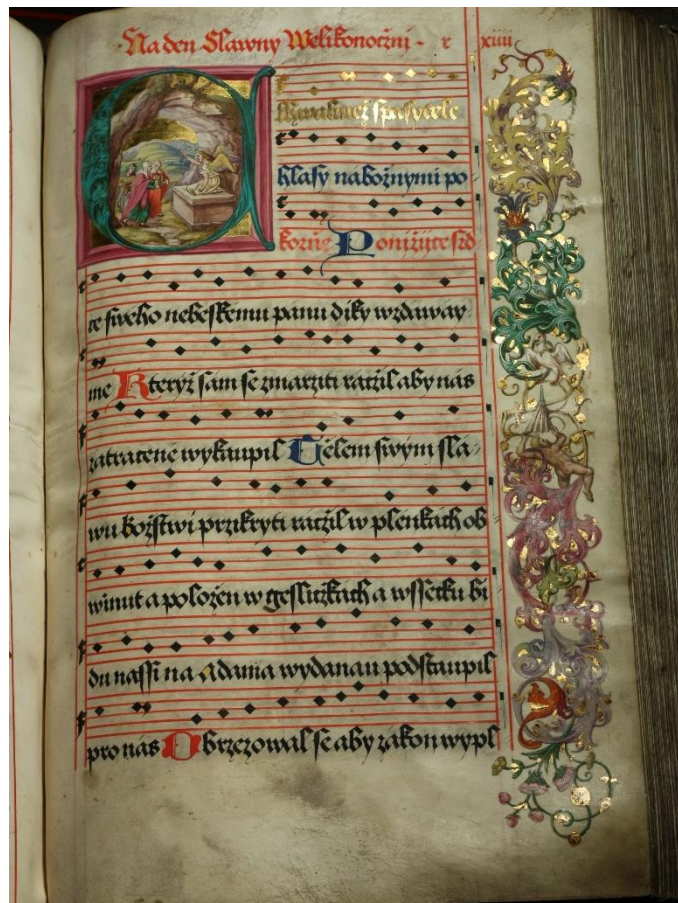 Na den Slawny Welikonoczni - r xiiii
Chwalmež spasytele
hlasy nabožnymi po-
korně Ponižiice srd-
ce sweho nebeskemu panu diky wzdaway-
me Kteryž sam se zmařiti ratžil aby nas
zatracene wykaupil Cělem swym sla-
wu božstwi przikryti ratžil w plenkach ob
winut a položen w gesličžkach a wssecku bi
du nassi na adama wydanau podstaupil
pro nas Obrzezowal se aby zakon wypl